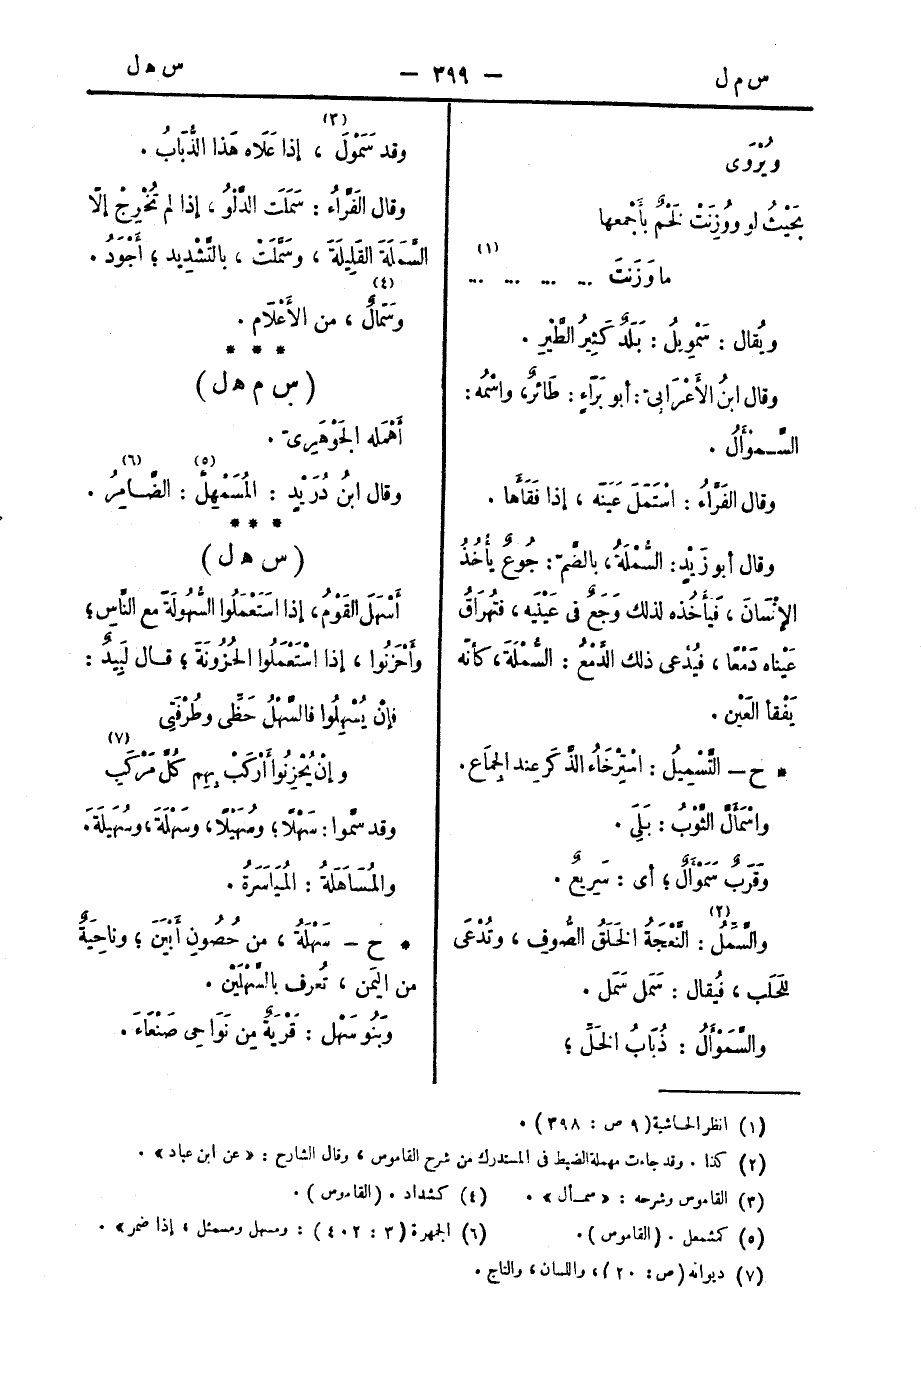 س م ل
— ٣٩٩ —
س ه ل
ويُرْوَى
بَحَيْثُ لو وُوزِنَتْ لَخْمٌ بأَجْمعها
ما وَزَنتَ ... ... ... ... (١)
ويُقال : سَمْوِيلُ : بَلَدٌ كَثِيرُ الطَّيْرِ .
وقال ابنُ الأَعْرَابِىّ : أبو بَرَّاءٍ : طَائرٌ، واسْمُه :
السَّـمَوْأَلُ .
وقال الفَرَّاءُ : اسْتَمَلَ عَيْنَه ، إذا فَقَأَها .
وقال أبو زَيْدٍ : السُّمْلَةُ، بالضَّمّ : جُوعٌ يأْخُذُ
الإنْسَانَ ، فَيَأْخُذه لذلك وَجَعٌ فى عَيْنَيْه ، فَتُهرَاقُ
عَيْناه دَمْعًا ، فَيُدْعى ذلك الدَّمْعُ : السُّمْلَةَ، كأنَّه
يَفْقأ العَيْن .
* ح — التَّسْمِيلُ : اسْتِرْخَاءُ الذَّكَر عند الجِمَاع .
واسْمَأَلَّ الثَّوْبُ : بَلِيَ .
وقَرَبٌ سَمَوْأَلٌ ؛ أى : سَرِيعٌ .
والسَّمَلُ (٢) : النَّعْجَةُ الخَلَقُ الصُّوفِ ، وتُدْعَى
للحَلَب ، فيُقال : سَمَل سَمَل .
والسَّمَوْأَلُ : ذُبَابُ الخَلِّ ؛
وقد سَمَوْلَ (٣) ، إذا عَلَاه هَذا الذُّبَابُ .
وقال الفَرَّاءُ : سَمَلَت الدَّلْوُ ، إذا لم تُخْرِجْ إلَّا
السَّمَلَةَ القَلِيلَةَ ، وسَمَّلَتْ ، بالتَّشْدِيد ؛ أَجْوَدُ .
وسَمَّالٌ (٤) ، من الأَعْلَام .
* * *
(س م ه ل)
أَهْمَله الجَوْهَرِىّ .
وقال ابنُ دُرَيْدٍ : المُسْمَهِلُّ (٥) : الضَّـامِرُ (٦) .
* * *
(س ه ل)
أَسْهَلَ القَوْمُ، إذا اسْتَعْمَلُوا السُّهُولَةَ مع النَّاسِ ؛
وأَحْزَنُوا ، إذا اسْتَعْمَلُوا الحُزُونَةَ ؛ قـال لَبِيدٌ :
فإنْ يُسْهِلُوا فالسَّهْلُ حَظِّى وطُرْقَتِى
وإنْ يُحْزِنُوا أَرْكَبْ بِهِم كُلَّ مَرْكَبِ (٧)
وقد سَمَّوا : سَهْلًا ؛ وسُهَيْلًا، وسَهْلَةَ، وسُهَيْلَةَ.
والمُسَاهَلَةُ : المُيَاسَرَةُ .
* ح — سَهْلَةُ ، من حُصُونِ أَبْيَنَ ؛ وناحِيَةٌ
من اليَمن ، تُعرف بالسَّهْلَيْن .
وبَنُو سَهْل : قَرْيَةٌ مِن نَوَاحِى صَنْعَاءَ .
(١) انظر الحاشية (٩ ص : ٣٩٨) .
(٢) كذا . وقد جاءت مهملة الضبط فى المستدرك من شرح القاموس ، وقال الشارح : « عن ابن عباد » .
(٣) القاموس وشرحه : « سمـأل » . (٤) كشداد . (القاموس) .
(٥) كمشمعل . (القاموس) . (٦) الجمهرة (٣ : ٤٠٢) : ومسهل ومسمئل ، إذا ضمر» .
(٧) ديوانه (ص : ٢٠)، واللسان ، والتاج .